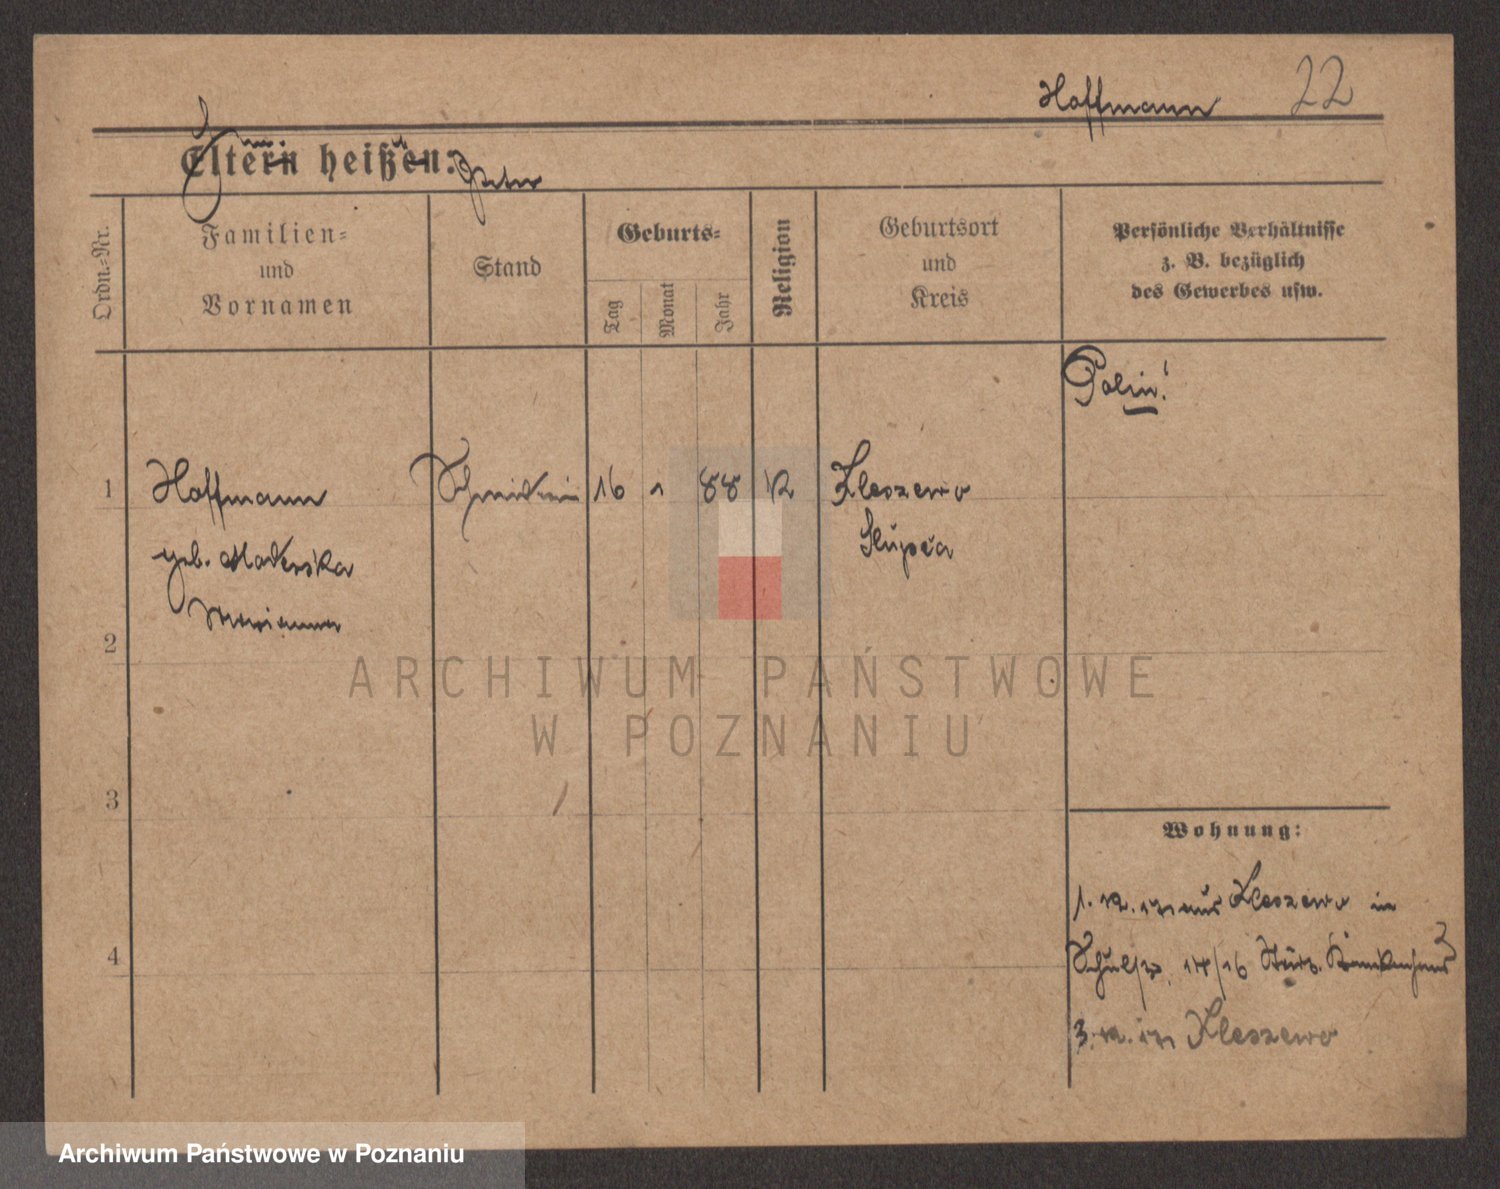 Hoffmann 22
Eltern heißen: Peter
Ordn.-Nr.
Familien-
und
Vornamen
Stand
Geburts-
Tag
Monat
Jahr
Religion
Geburtsort
und
Kreis
Persönliche Verhältnisse
z. B. bezüglich
des Gewerbes usw.
Polin!
1 Hoffmann 16 1 88 K Kleszewo
Slupca
geb. Maderska
Marianna
2
ARCHIWUM PAŃSTWOWE
W POZNANIU
3
4
Wohnung:
1. aus Kleszewo in
Schulstr. 14/16 Städt. Krankenhaus
3. Kleszewo
Archiwum Państwowe w Poznaniu